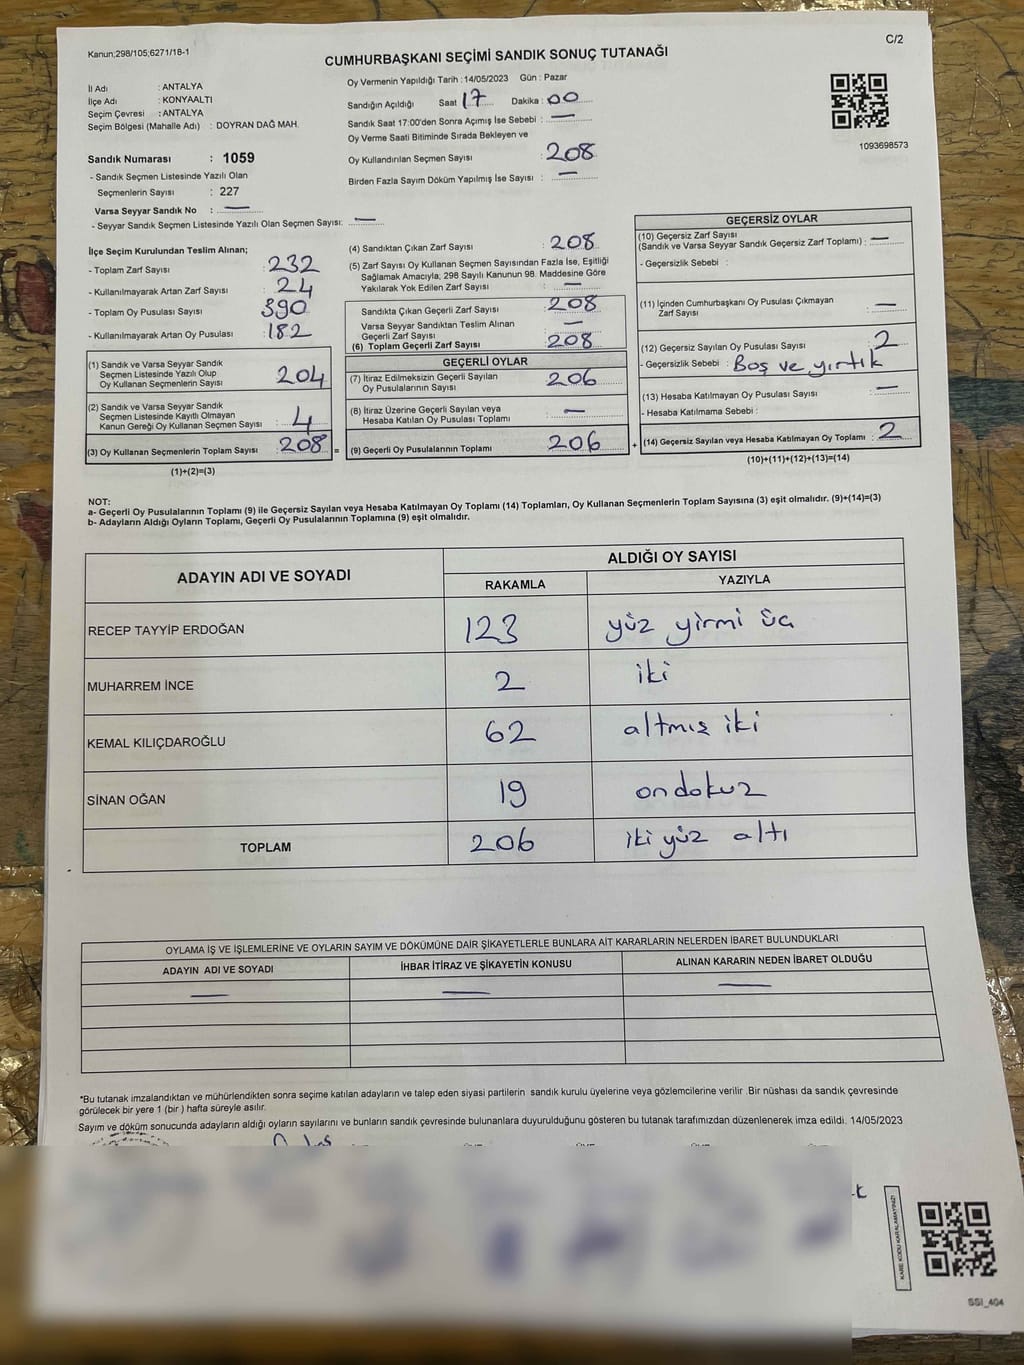 Kanun,298/105,6271/18-1
C/2
CUMHURBAŞKANI SEÇİMİ SANDIK SONUÇ TUTANAĞI
İl Adı : ANTALYA
İlçe Adı : KONYAALTI
Seçim Çevresi : ANTALYA
Seçim Bölgesi (Mahalle Adı) : DOYRAN DAĞ MAH.
Sandık Numarası : 1059
- Sandık Seçmen Listesinde Yazılı Olan
Seçmenlerin Sayısı : 227
Varsa Seyyar Sandık No : —
- Seyyar Sandık Seçmen Listesinde Yazılı Olan Seçmen Sayısı: —
Oy Vermenin Yapıldığı Tarih : 14/05/2023 Gün : Pazar
Sandığın Açıldığı Saat 17 Dakika : 00
Sandık Saat 17:00'den Sonra Açımış İse Sebebi : —
Oy Verme Saati Bitiminde Sırada Bekleyen ve
Oy Kullandırılan Seçmen Sayısı : 208
Birden Fazla Sayım Döküm Yapılmış İse Sayısı : —
1093698573
İlçe Seçim Kurulundan Teslim Alınan;
- Toplam Zarf Sayısı : 232
- Kullanılmayarak Artan Zarf Sayısı : 24
- Toplam Oy Pusulası Sayısı : 390
- Kullanılmayarak Artan Oy Pusulası : 182
(1) Sandık ve Varsa Seyyar Sandık
Seçmen Listesinde Yazılı Olup
Oy Kullanan Seçmenlerin Sayısı : 204
(2) Sandık ve Varsa Seyyar Sandık
Seçmen Listesinde Kayıtlı Olmayan
Kanun Gereği Oy Kullanan Seçmen Sayısı : 4
(3) Oy Kullanan Seçmenlerin Toplam Sayısı : 208 =
(1)+(2)=(3)
(4) Sandıktan Çıkan Zarf Sayısı : 208
(5) Zarf Sayısı Oy Kullanan Seçmen Sayısından Fazla İse, Eşitliği
Sağlamak Amacıyla, 298 Sayılı Kanunun 98. Maddesine Göre
Yakılarak Yok Edilen Zarf Sayısı : —
Sandıkta Çıkan Geçerli Zarf Sayısı : 208
Varsa Seyyar Sandıktan Teslim Alınan
Geçerli Zarf Sayısı : —
(6) Toplam Geçerli Zarf Sayısı : 208
GEÇERLİ OYLAR
(7) İtiraz Edilmeksizin Geçerli Sayılan
Oy Pusulalarının Sayısı : 206
(8) İtiraz Üzerine Geçerli Sayılan veya
Hesaba Katılan Oy Pusulası Toplamı : —
(9) Geçerli Oy Pusulalarının Toplamı 206 +
GEÇERSİZ OYLAR
(10) Geçersiz Zarf Sayısı
(Sandık ve Varsa Seyyar Sandık Geçersiz Zarf Toplamı) : —
- Geçersizlik Sebebi :
(11) İçinden Cumhurbaşkanı Oy Pusulası Çıkmayan
Zarf Sayısı : —
(12) Geçersiz Sayılan Oy Pusulası Sayısı : 2
- Geçersizlik Sebebi : Boş ve yırtık
(13) Hesaba Katılmayan Oy Pusulası Sayısı : —
- Hesaba Katılmama Sebebi :
(14) Geçersiz Sayılan veya Hesaba Katılmayan Oy Toplamı : 2
(10)+(11)+(12)+(13)=(14)
NOT:
a- Geçerli Oy Pusulalarının Toplamı (9) ile Geçersiz Sayılan veya Hesaba Katılmayan Oy Toplamı (14) Toplamları, Oy Kullanan Seçmenlerin Toplam Sayısına (3) eşit olmalıdır. (9)+(14)=(3)
b- Adayların Aldığı Oyların Toplamı, Geçerli Oy Pusulalarının Toplamına (9) eşit olmalıdır.
ADAYIN ADI VE SOYADI ALDIĞI OY SAYISI
RAKAMLA YAZIYLA
RECEP TAYYİP ERDOĞAN 123 yüz yirmi üç
MUHARREM İNCE 2 iki
KEMAL KILIÇDAROĞLU 62 altmış iki
SİNAN OĞAN 19 on dokuz
TOPLAM 206 iki yüz altı
OYLAMA İŞ VE İŞLEMLERİNE VE OYLARIN SAYIM VE DÖKÜMÜNE DAİR ŞİKAYETLERLE BUNLARA AİT KARARLARIN NELERDEN İBARET BULUNDUKLARI
ADAYIN ADI VE SOYADI İHBAR İTİRAZ VE ŞİKAYETİN KONUSU ALINAN KARARIN NEDEN İBARET OLDUĞU
— — —
*Bu tutanak imzalandıktan ve mühürlendikten sonra seçime katılan adayların ve talep eden siyasi partilerin sandık kurulu üyelerine veya gözlemcilerine verilir. Bir nüshası da sandık çevresinde
görülecek bir yere 1 (bir ) hafta süreyle asılır.
Sayım ve döküm sonucunda adayların aldığı oyların sayılarını ve bunların sandık çevresinde bulunanlara duyurulduğunu gösteren bu tutanak tarafımızdan düzenlenerek imza edildi. 14/05/2023
KARE KODU KARALAMAYINIZ!
SSI_404